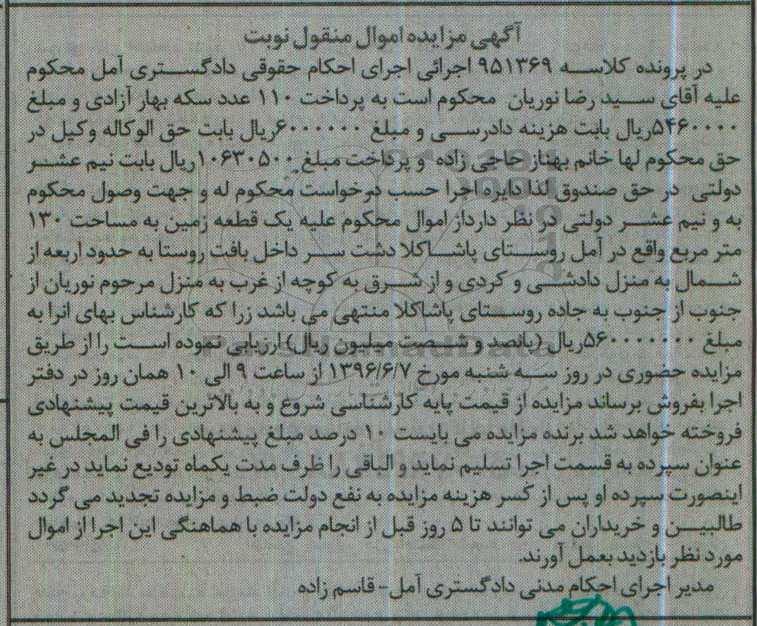 آگهی مزایده اموال منقول نوبت
در پرونده کلاسه ۹۵۱۳۶۹ اجرائی اجرای احکام حقوقی دادگستری آمل محکوم
علیه آقای سید رضا نوریان محکوم است به پرداخت ۱۱۰ عدد سکه بهار آزادی و مبلغ
۵۴۶۰۰۰۰ریال بابت هزینه دادرسی و مبلغ ۶۰۰۰۰۰۰ریال بابت حق الوکاله وکیل در
حق محکوم لها خانم بهناز حاجی زاده و پرداخت مبلغ ۱۰۶۳۰۵۰۰ریال بابت نیم عشر
دولتی در حق صندوق لذا دایره اجرا حسب درخواست محکوم له و جهت وصول محکوم
به و نیم عشر دولتی در نظر دارداز اموال محکوم علیه یک قطعه زمین به مساحت ۱۳۰
متر مربع واقع در آمل روستای پاشاکلا دشت سر داخل بافت روستا به حدود اربعه از
شمال به منزل دادشی و کردی و از شرق به کوچه از غرب به منزل مرحوم نوریان از
جنوب از جنوب به جاده روستای پاشاکلا منتهی می باشد زرا که کارشناس بهای انرا به
مبلغ ۵۶۰۰۰۰۰۰۰ریال (پانصد و شصت میلیون ریال) ارزیابی نموده است را از طریق
مزایده حضوری در روز سه شنبه مورخ ۱۳۹۶/۶/۷ از ساعت ۹ الی ۱۰ همان روز در دفتر
اجرا بفروش برساند مزایده از قیمت پایه کارشناسی شروع و به بالاترین قیمت پیشنهادی
فروخته خواهد شد برنده مزایده می بایست ۱۰ درصد مبلغ پیشنهادی را فی المجلس به
عنوان سپرده به قسمت اجرا تسلیم نماید و الباقی را ظرف مدت یکماه تودیع نماید در غیر
اینصورت سپرده او پس از کسر هزینه مزایده به نفع دولت ضبط و مزایده تجدید می گردد
طالبین و خریداران می توانند تا ۵ روز قبل از انجام مزایده با هماهنگی این اجرا از اموال
مورد نظر بازدید بعمل آورند.
مدیر اجرای احکام مدنی دادگستری آمل- قاسم زاده